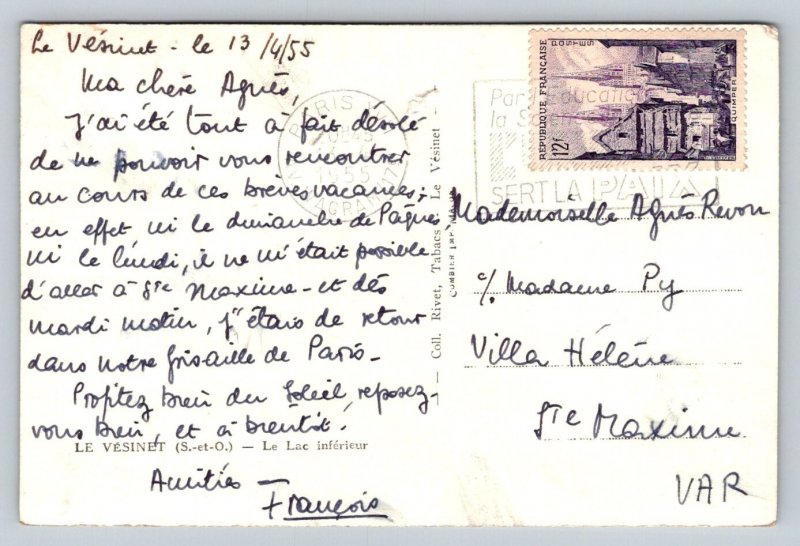 Le Vésinet - le 13/4/55
Ma chère Agnès,
J'ai été tout à fait désolé
de ne pouvoir vous rencontrer
au cours de ces brèves vacances ;
en effet ni le dimanche de Pâques
ni le lundi, il ne m'était possible
d'aller à Ste Maxime - et dès
mardi matin, j'étais de retour
dans notre grisaille de Paris -
Profitez bien du soleil, reposez-
vous bien, et à bientôt !
LE VÉSINET (S.-et-O.) — Le Lac inférieur
Amitiés -
François
Coll. Rivet, Tabacs - Le Vésinet
COMBIER IMP.
PARIS
1955
RÉPUBLIQUE FRANÇAISE
POSTES
12F
QUIMPER
Par l'Education
la
SERT LA PAIX
Mademoiselle Agnès Revon
c/. Madame Py
Villa Hélène
Ste Maxime
VAR